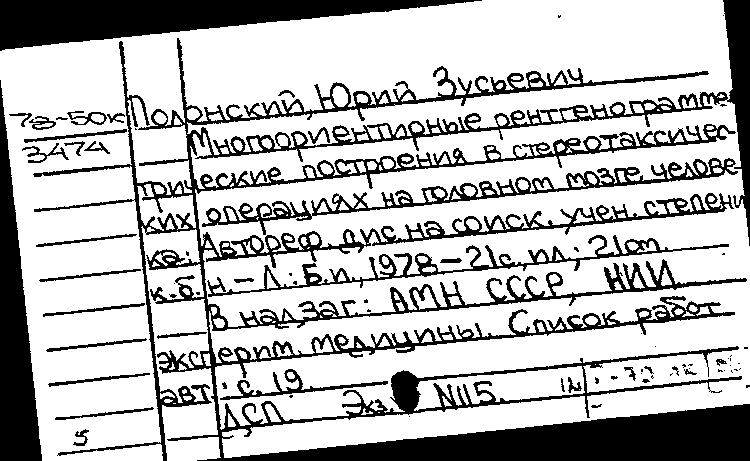 78-50к Полонский, Юрий Зусьевич.
3474 Многоориентирные рентгенограммме
трические построения в стереотаксичес-
ких операциях на головном мозге челове-
ка: Автореф. дис. на соиск. учен. степени
к.б.н. – Л.: Б.и., 1978 – 21 с., ил.; 21 см.
В надзаг.: АМН СССР, НИИ
эксперим. медицины. Список работ
авт.: с. 19.
ДСП. Экз. N115.
5